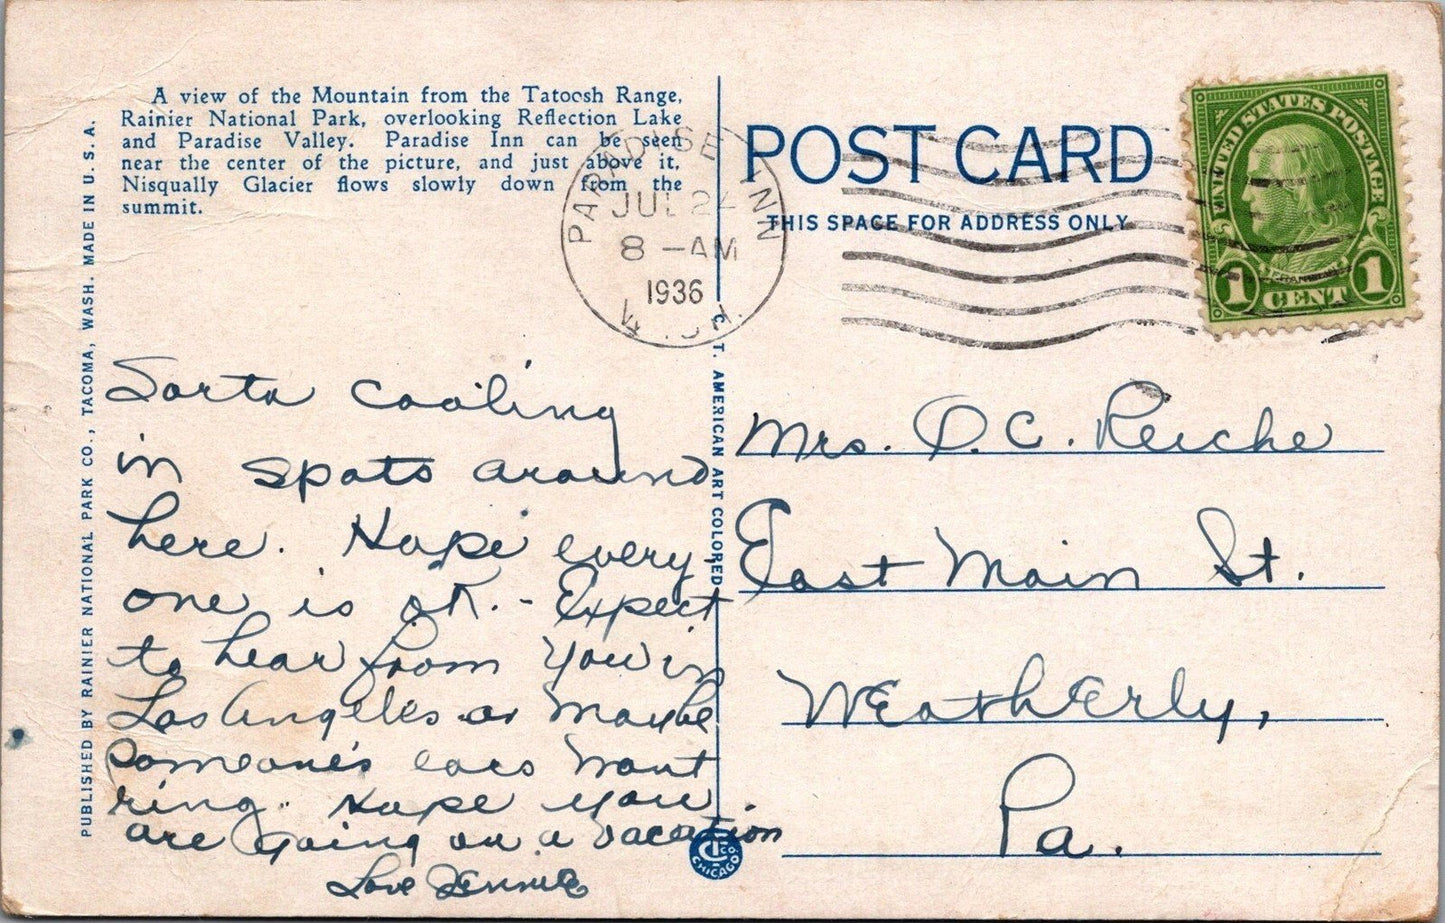 A view of the Mountain from the Tatoosh Range,
Rainier National Park, overlooking Reflection Lake
and Paradise Valley. Paradise Inn can be seen
near the center of the picture, and just above it.
Nisqually Glacier flows slowly down from the
summit.
PUBLISHED BY RAINIER NATIONAL PARK CO., TACOMA, WASH. MADE IN U. S. A.
PARADISE INN
JUL 24
8 - AM
1936
WASH.
POST CARD
THIS SPACE FOR ADDRESS ONLY
UNITED STATES POSTAGE
FRANKLIN
1 CENT 1
C. T. AMERICAN ART COLORED
Sorta cooling
in spots around
here. Hope every
one is OK. - Expect
to hear from you in
Los Angeles or maybe
someone's ears wont
ring. Hope you
are going on a vacation
Love Jennie
Mrs. O. C. Reiche
East Main St.
Weatherly,
Pa.
CT CO.
CHICAGO